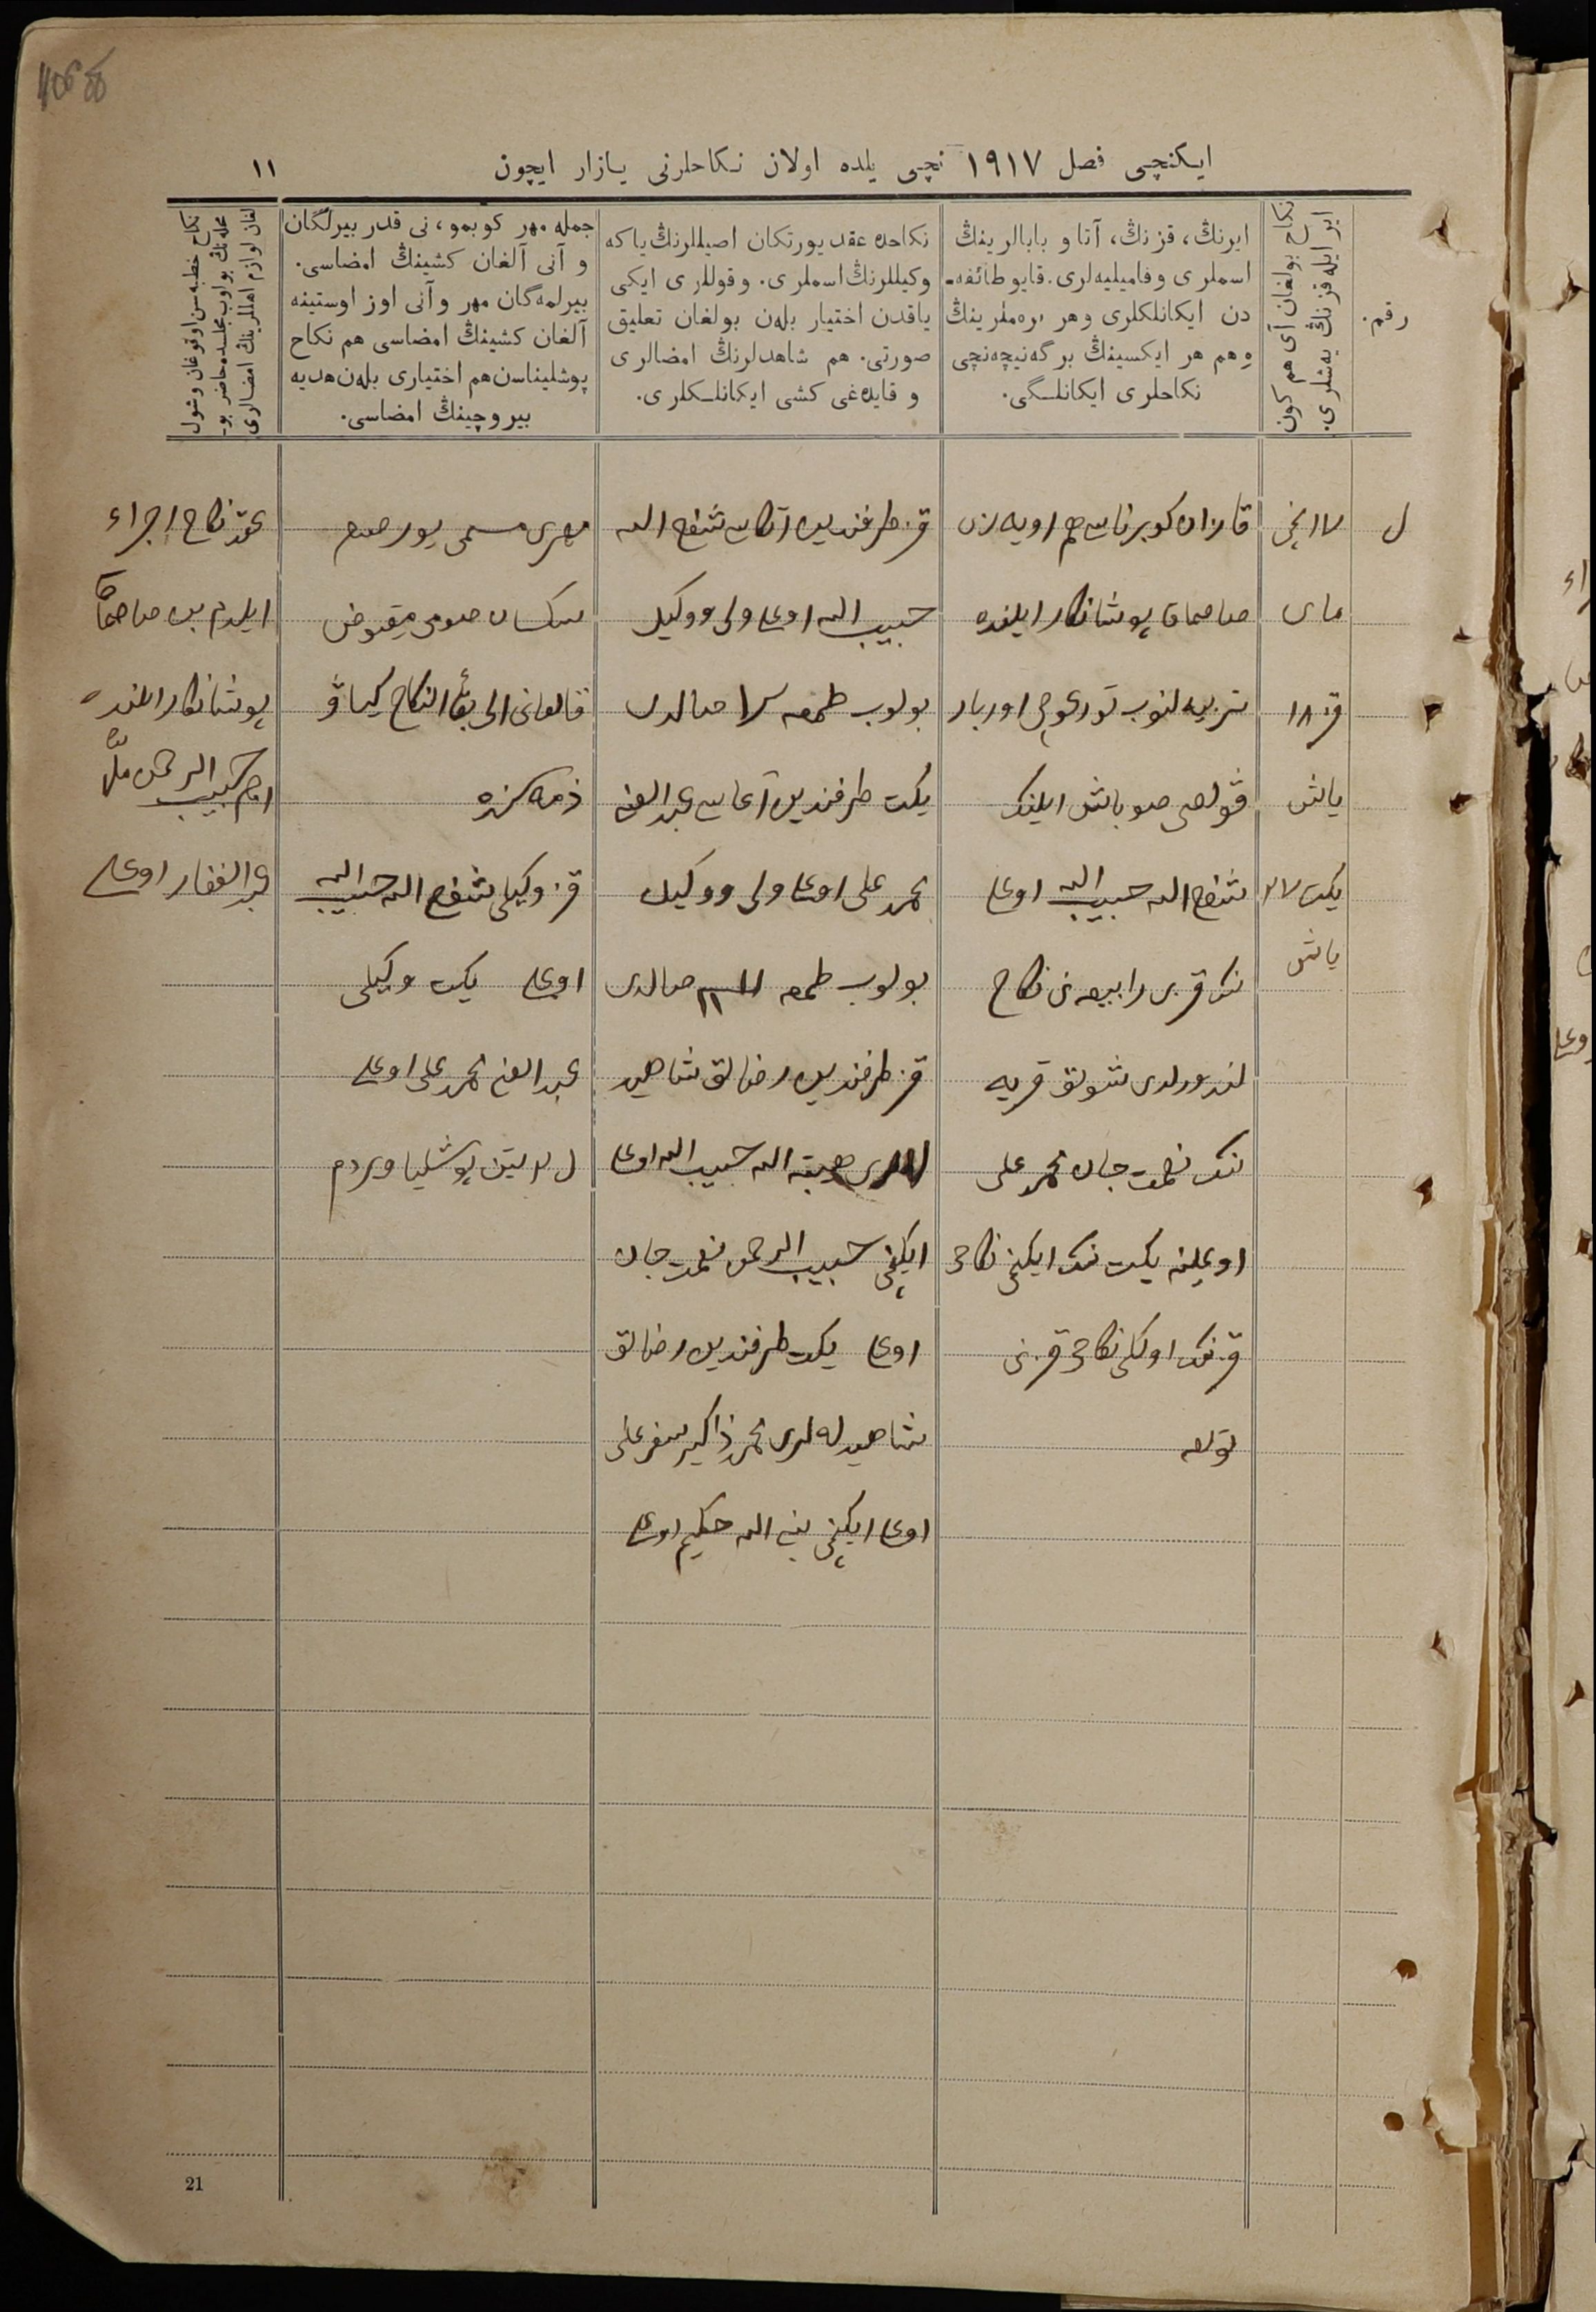 ایکنچی فصل ١٩١٧ نچی یلده اولان نکاحلرنی یازار ایچون
١١
رقم.
نکاح بولغان آی هم کون
ایر ایله قزنڭ یه‌شلری.
ایرنڭ، قزنڭ، آتا و بابالرینڭ
اسملری و فامیلیه‌لری. قایو طائفه‌-
دن ایکانلکلری وهر
وهم هر ایکسینڭ برگه‌نیچه‌نچی
نکاحلری ایکانلـگی.
نکاحده عقد یورتکان اصیللرنڭ یاکه
وکیللرنڭ اسملری. و قوللری ایکی
یاقدن اختیار بله‌ن بولغان تعلیق
صورتی. هم شاهدلرنڭ امضالری
و قایده‌غی کشی ایکانلـکلری.
جمله مهر کوبمو، نی قدر بیرلگان
و آنی آلغان کشینڭ امضاسی.
بیرلمه‌گان مهر و آنی اوز اوستینه
آلغان کشینڭ امضاسی هم نکاح
پوشلیناسن هم اختیاری بله‌ن هدیه
بیروچینڭ امضاسی.
نکاح خطبه‌سن اوقوغان وشول
محله‌نڭ بو اوب مجلسده حاضر بو-
لغان لوازم اهللرینڭ امضالری
١٧ نچی
مای
قز ١٨
یاش
یکت ٢٧
یاش
قازان کوبرناسی هم اویه‌زی
پوشانکار ایلنده
تربیه‌لنوب تورغوچی اوریاز
صوباش ایلینک
شفیع الله حبیب الله اوغلی
ننک قزی رابیعه‌نی نکاح
لندورلدی شولوق قریه
ننک نعمت جان محمد علی
اوغلینه یکت ننک ایکنچی نکاحی
قزننک اولکی نکاحی قزنی
تولە
قز طرفندین آتاسی شفیع الله
حبیب الله اوغلی ولی و وکیل
بولوب طمغه صالدی
یکت طرفندین آغاسی عبد الغنی
محمد علی اوغلی ولی و وکیل
بولوب طمغه صالدی
قز طرفندین رضالق شاهید
لاری هبة الله حبیب الله اوغلی
ایکنچی حبیب الرحمن نعمت جان
اوغلی یکت طرفندین رضالق
شاهیدله‌لری محمد ذاکیر سفرعلی
اوغلی ایکنچی الله حکیم اوغلی
مهری مسمی یوز صوم
سکسان صومی مقبوض
قالغانی الی بقاء النکاح کیاو
ذمه‌سنده
قز وکیلی شفیع الله حبیب الله
اوغلی یکت وکیلی
عبد الغنی محمد علی اوغلی
پوشلینا ویردم
عقد نکاح اجراء
ایلدم بن
پوشانکار ایلنده
امام حبیب الرحمن ملا
عبد الغفار اوغلی
21